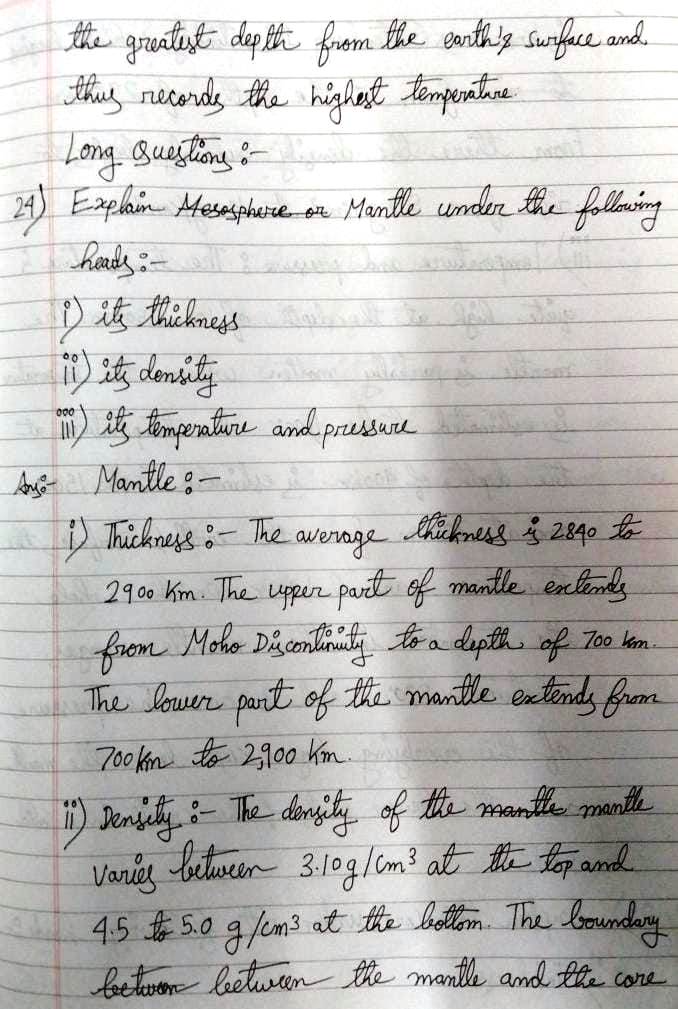 the greatest depth from the earth's surface and
thus records the highest temperature.
Long Questions :-
24) Explain Mesosphere or Mantle under the following
heads :-
i) its thickness
ii) its density
iii) its temperature and pressure
Ans:- Mantle :-
i) Thickness :- The average thickness is 2840 to
2900 Km. The upper part of mantle extends
from Moho Discontinuity to a depth of 700 km.
The lower part of the mantle extends from
700 km to 2,900 Km.
ii) Density :- The density of the mantle mantle
varies between 3.10 g/cm³ at the top and
4.5 to 5.0 g/cm³ at the bottom. The boundary
between between the mantle and the core